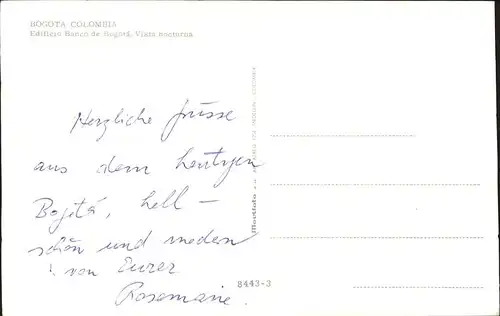 BOGOTA COLOMBIA
Edificio Banco de Bogotá, Vista nocturna
Herzliche Grüsse
aus dem heutigen
Bogotá, hell —
schön und
von Eurer
Rosemarie.
Movifoto
8443-3